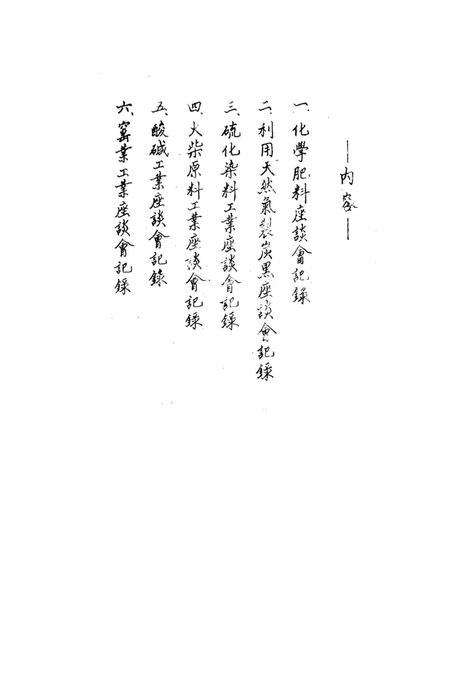 —内容—
一、化學肥料座談會記錄
二、利用天然氣製炭黑座談會記錄
三、硫化染料工業座談會記錄
四、火柴原料工業座談會記錄
五、酸碱工業座談會記錄
六、窰業工業座談會記錄